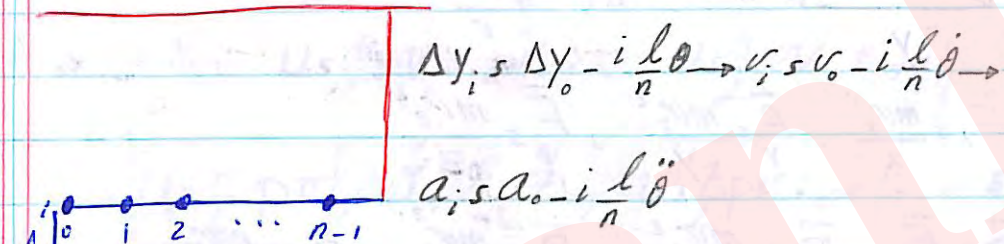 Δy_i s Δy_0 - i l/n θ → v_i s v_0 - i l/n θ̇ →
a_i s a_0 - i l/n θ̈
0 1 2 ... n-1